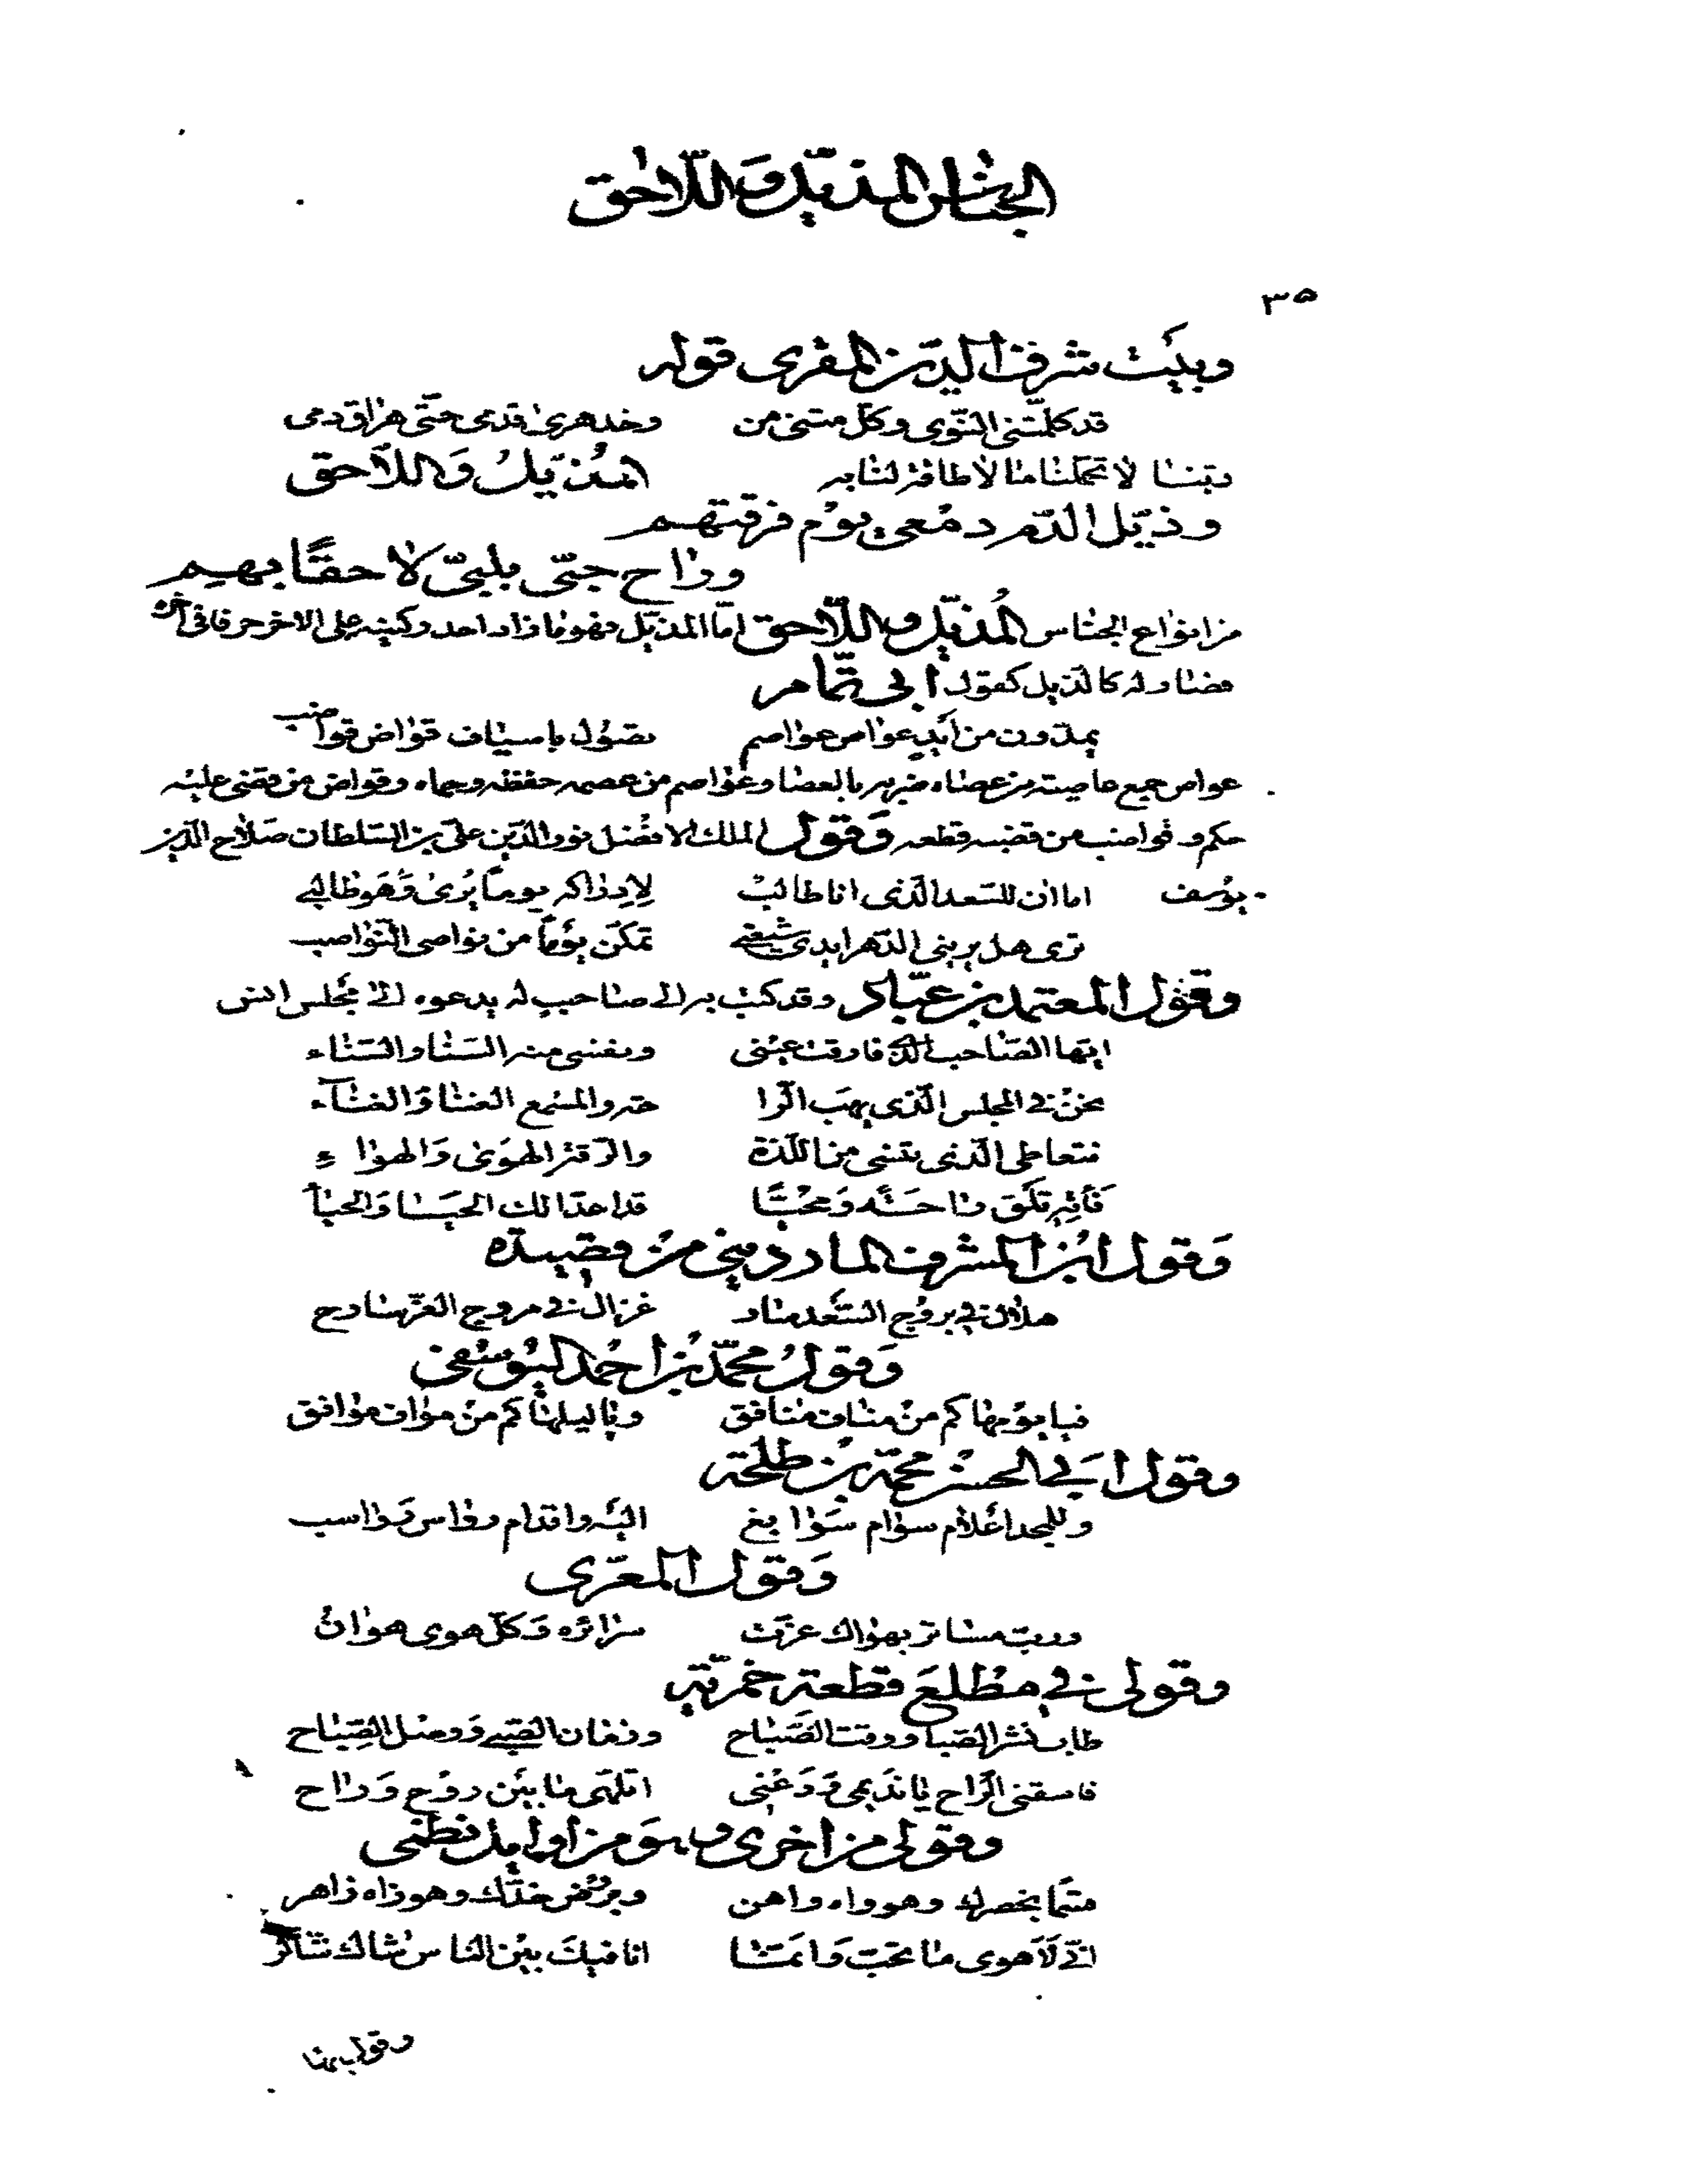 الجناس المذيّل وَاللّاحق
٣٥
وبيت شرف الدّين المقرى قوله
قد كلّمتنى النّوى وكلّ متنى من وخد هرى قدمى حتّى هراق دمى
ربّنا لا تحمّلنا ما لا طاقة لنا به المُذيّل وَاللّاحق
وذيّل الدّم دمعى يوم فرقتهم
وراح حبّى بلبّى لاحقًا بهم
من انواع الجناس المُذيّل واللّاحق امّا المذيّل فهو ما زاد احد ركنيه على الاخر حرفا فى آخره
فصار له كالذيل كقول ابى تمّام
يمدّون من أيدٍ عواص عواصم تصُول باسياف قواض قواضب
عواص جمع عاصيته من عصاه ضربه بالعصا وعواصم من عصمه حفظه وحماه وقواض من قضى عليه
حكم وقواضب من قضبه قطعه وَقول الملك الافضل نور الدّين علىّ بن السّلطان صلاح الدّين
يوسف اما ان للسّعد الّذى انا طالب لإدراكه يوما يُرى وَهو طالبى
ترى هل يرينى الدّهر ايدى شيعتى تمكّن يومًا من نواصى النّواصب
وقول المعتمد بن عبّاد وقد كتب به الى صاحب له يدعوه الى مجلس انس
ايّها الصّاحب الّذى فارقت عينى ونفسى منه السّنا والسّناء
نحن فى المجلس الّذى يهب الرّا حة والمسمع الغنا وَالغناء
نتعاطى الّتى تنسى من اللّذة والرّقة الهوَى وَالهواء
فَأته تَلَق راحَة وَمحيّا قد اعدّا لك الحيَا وَالحياء
وَقول ابن المشرف الماردينى من قصيدة
هلال فى بروج السّعد سار غزال فى مروج العزّ سارح
وَقولُ محمّد بن احمد اليوسفى
فيا يومها كم من مناف منافق ويا ليلها كم من مواف موافق
وقول ابى الحسن محمّد بن طلحة
وللمجد أعلام سوام سَوابغ
وَقول المعرّى
سرائره وَكلّ هوى هوان
وقولى فى مطلع قطعة خمريّة
طاب نشر الصّبا ووقت الصَّباح وزمان الصّبى وَوصل الصِّباح
فاسقنى الرَّاح يا نديمى وَدَعنى اتلهّى ما بَين روح وَراح
وقولى من اخرى وهوَ من اوايل نظمى
قسما بخصرك وهو واه واهن وبروض خدّك وهو زاه زاهر
انّى لَأهوى ما تحبّ وَانمّا انا فيك بين النّاس شاك شاكر
وقولى منها